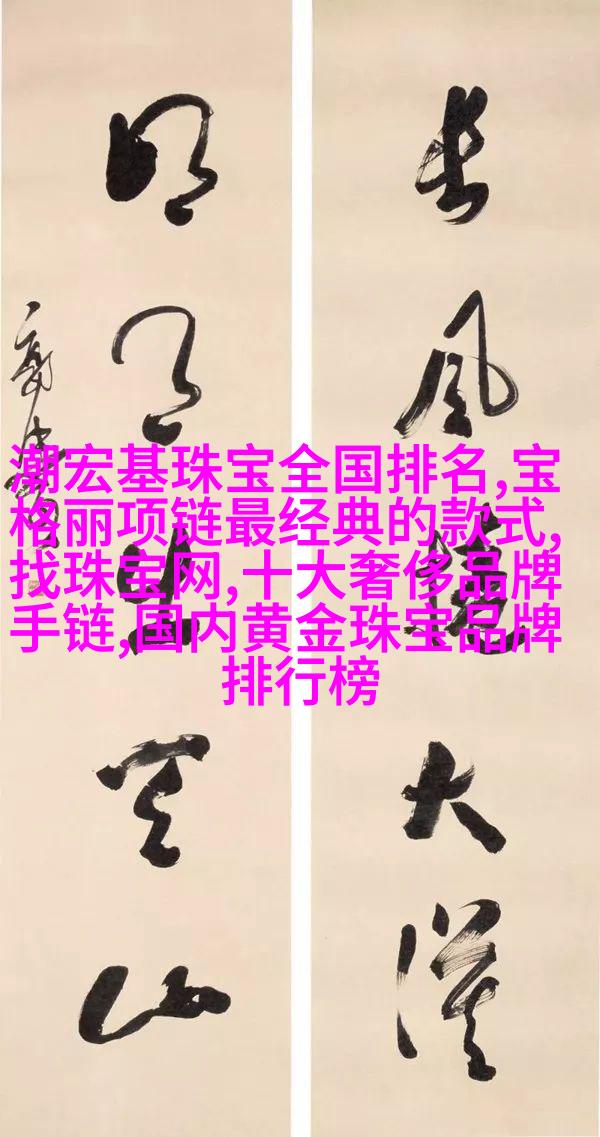 長風大漠
明月天山
潮宏基珠宝全国排名,宝
格丽项链最经典的款式,
找珠宝网,十大奢侈品牌
手链,国内黄金珠宝品牌
排行榜